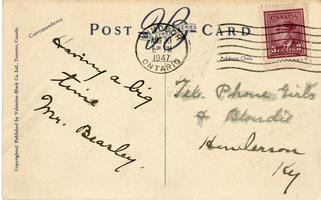 Correspondence
POST CARD
Address Only
CANADA
3 3
1947
ONTARIO
Having a big
time
Mr. Beasley.
Tele. Phone Girls
& Blondie
Henderson
Ky
Copyrighted. Published by Valentine-Black Co. Ltd., Toronto, Canada